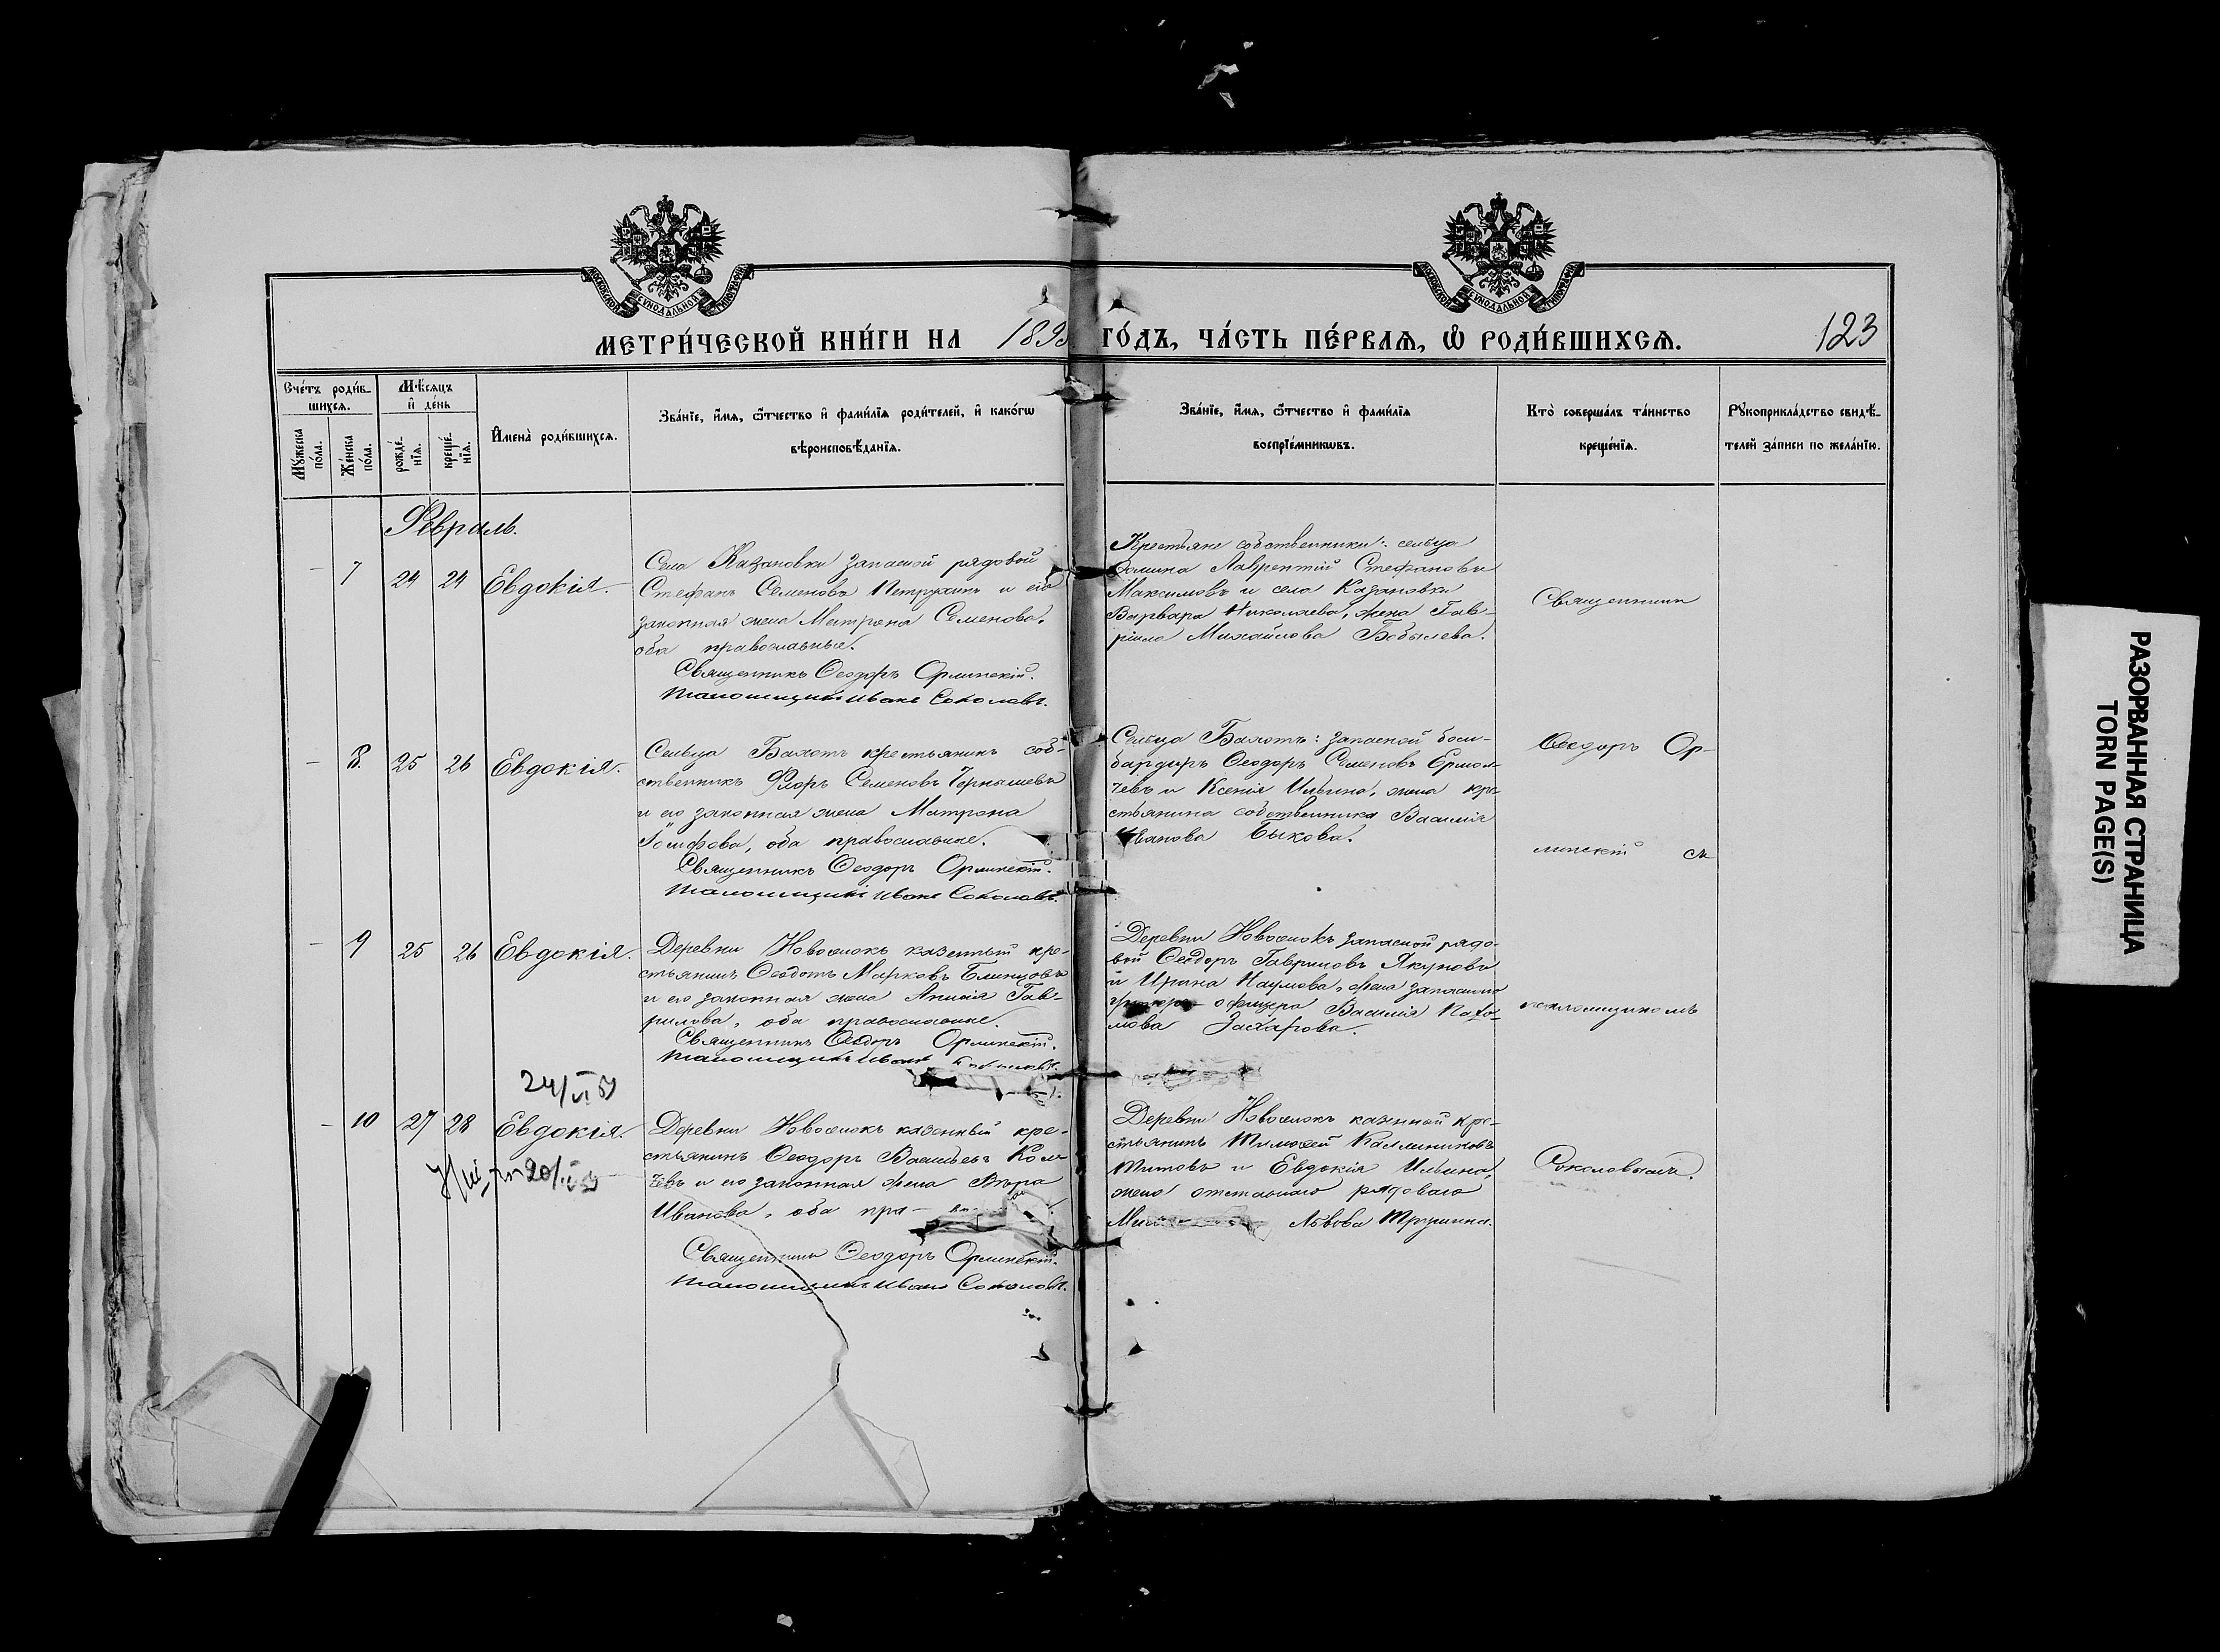 МОСКОВСКОЙ СѴНОДАЛЬНОЙ ТИПОГРАФІИ
МОСКОВСКОЙ СѴНОДАЛЬНОЙ ТИПОГРАФІИ
МЕТРИ́ЧЕСКОЙ КНИ́ГИ НА 189
ГО́ДЪ, ЧА́СТЬ ПЕ́РВАѦ, Ѽ РОДИ́ВШИХСѦ.
123
Счéтъ роди́в-
шихсѧ.
Мѣ́сѧцъ
и҆ дéнь
Мꙋ́жеска
по́ла.
Жéнска
по́ла.
рождé-
нїѧ.
крещé-
нїѧ.
И҆мена̀ роди́вшихсѧ.
Зва́нїе, и҆́мѧ, ѻ҆́тчество и҆ фами́лїѧ роди́телей, и҆ како́гѡ
вѣроисповѣ́данїѧ.
Зва́нїе, и҆́мѧ, ѻ҆́тчество и҆ фами́лїѧ
воспрїе́мникѡвъ.
Кто̀ соверша́лъ та́инство
крещéнїѧ.
Рꙋкоприкла́дство свидѣ́-
телей за́писи по жела́нїю.
Февраль.
- 7 24 24 Евдокія.
Села Казановки запасной рядовой
Стефанъ Семеновъ Петрухинъ и его
законная жена Матрона Семенова,
оба православные.
Священникъ Ѳеодоръ Орлинскій.
Иванъ Соколовъ.
Крестьяне собственники: сельца
Лаврентій Стефановъ
Максимовъ и села Казановки
Варвара Николаева, жена Гав-
ріила Михайлова Бобылева.
Священникъ
- 8. 25 26 Евдокія.
Сельца Бахотъ крестьянинъ соб-
ственникъ Флоръ Семеновъ Чернышевъ
и его законная жена Матрона
Іосифова, оба православные.
Священникъ Ѳеодоръ Орлинскій.
Иванъ Соколовъ.
Сельца Бахотъ: запасной бом-
бардиръ Ѳеодоръ Семеновъ Ермол-
чевъ и Ксенія Ильина, жена кре-
стьянина собственника Василія
Иванова Быкова.
Ѳеодоръ Ор-
линскій съ
- 9 25 26 Евдокія.
Деревни Новоселокъ казенный кре-
стьянинъ Ѳеодотъ Марковъ Блинцовъ
и его законная жена Анисія Гав-
рилова, оба православные.
Священникъ Ѳеодоръ Орлинскій.
Иванъ
Деревни Новоселокъ запасной рядо-
вой Ѳеодоръ Гавриловъ Якуновъ
и Ирина Наумова, жена запаснаго
офицера Василія
Захарова.
псаломщикомъ
24/VI
- 10 27 28 Евдокія.
Деревни Новоселокъ казенный кре-
стьянинъ Ѳеодоръ Васильевъ Кол-
чевъ и его законная жена Вѣра
Иванова, оба пра-
Священникъ Ѳеодоръ Орлинскій.
Иванъ Соколовъ.
Деревни Новоселокъ казенный кре-
стьянинъ Тимоѳей Каллиниковъ
Титовъ и Евдокія Ильина,
жена отставного рядоваго
Львова Трушина.
Соколовымъ.
РАЗОРВАННАЯ СТРАНИЦА
TORN PAGE(S)